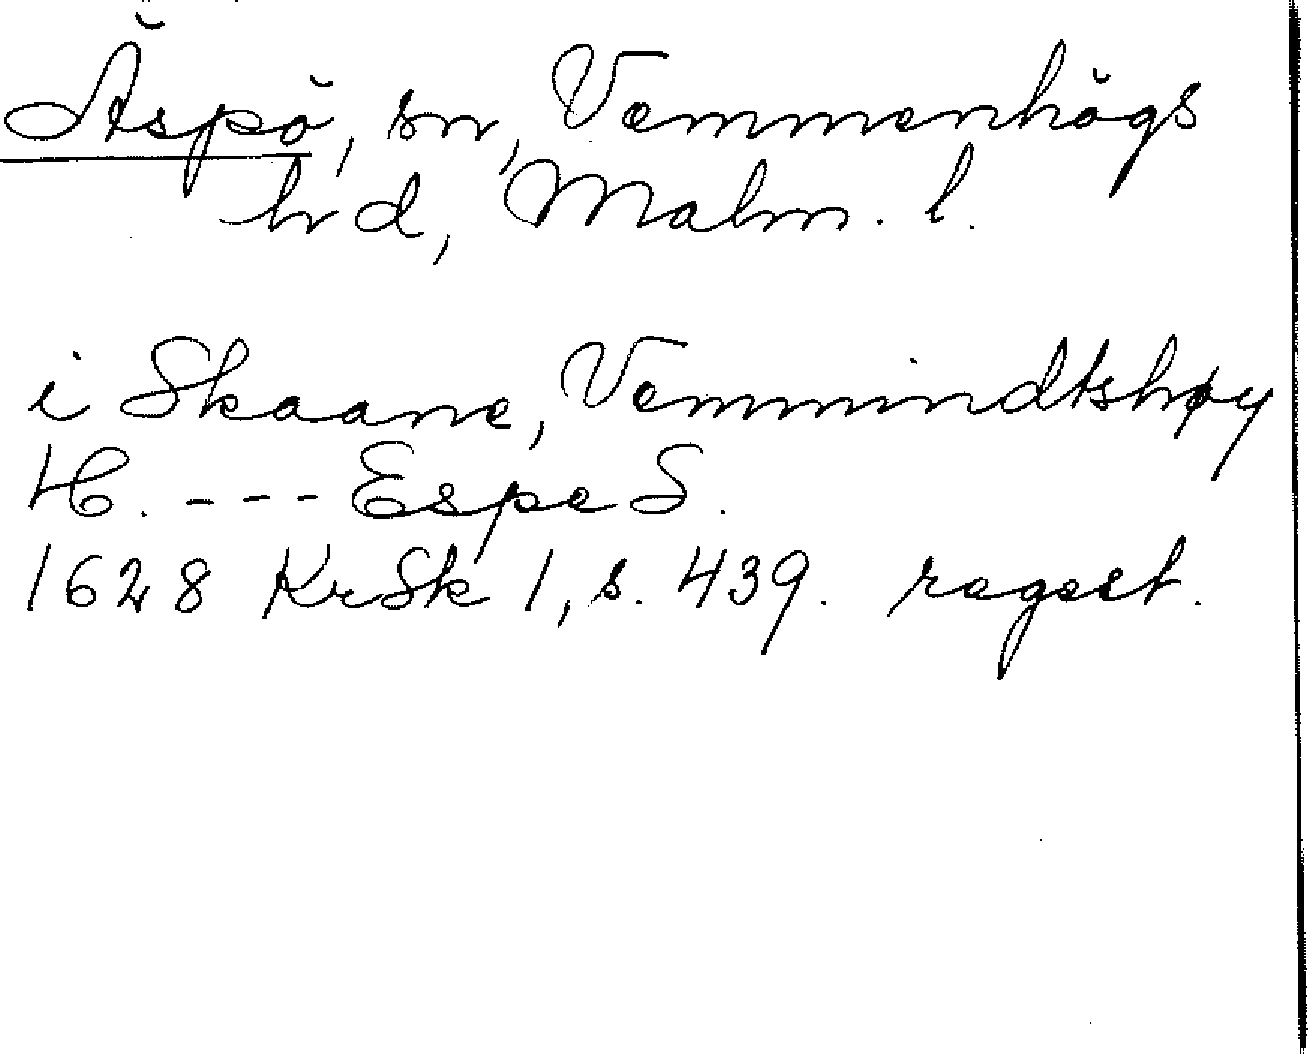 Äspö, sn, Vemmenhögs
hd, Malm. l.
i Skaane, Vemmindtshøy
H. --- Espe S.
1628 KrSk 1, s. 439. regest.